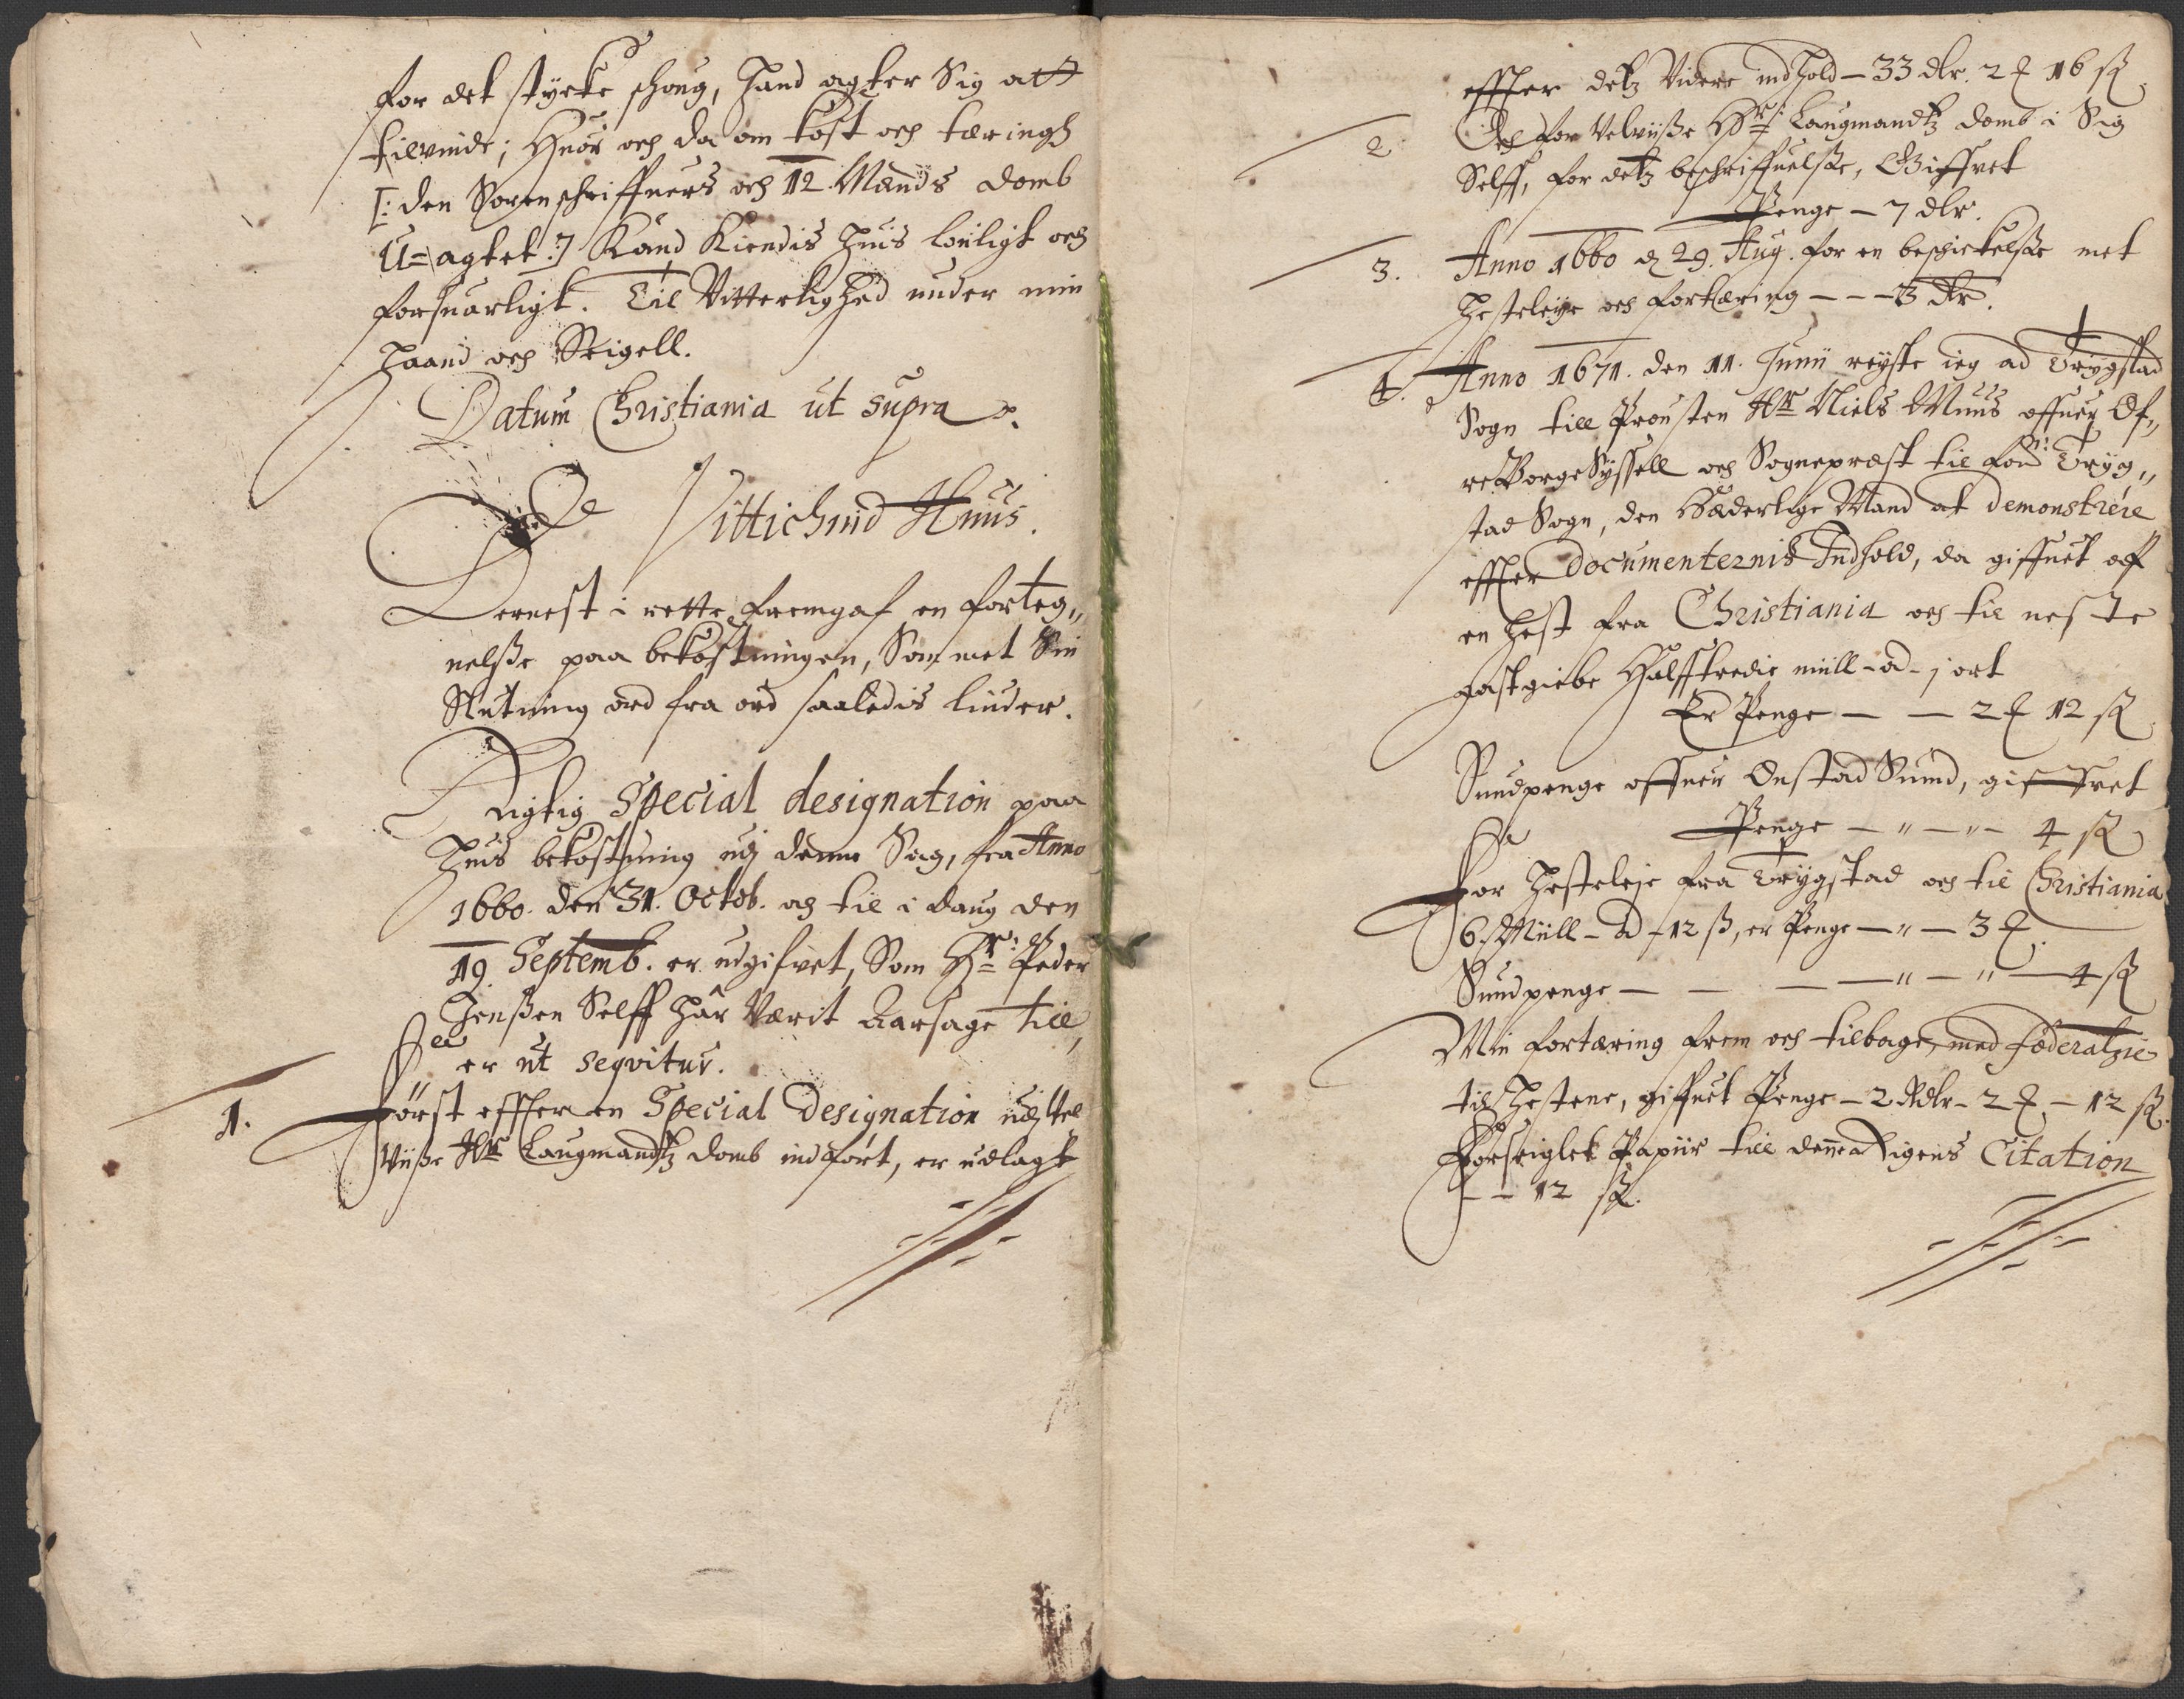 for det stycke schoug, hand agter Sig att
tilvinde; Huor och da om kost och tæringh
[: den Sorenschriffuers och 12 Mænds domb
U=agtet :] Kand Kiendis huis louligt och
forsuarligt. Til Vitterlighed under min
haand och Seigell.
Datum Christiania ut supra
Vittichind Huus.
Dernest i rette fremgaf en forteg„
nelße paa bekostningen, Som met Sin
Slutning ord fra ord saaledis liuder.
Rigtig Special designation paa
huis bekostning udj denne Sag, fra Anno
1660. den 31. Octob. och til i daug den
19 Septemb. er udgifvet, Som Hr: Peder
Jenßen Selff hâr Værit Aarsage till,
er ut seqvitur.
1. Först effter en Special Designation udj Vel
Viiße Hr Laugmandtz domb indfört, er udlagt
effter detz Videre indhold — 33 dlr. 2 ₰ 16 sk
2 Och for Velviiße Hr: Laugmandtz domb i Sig
Selff, for detz beschriffuelße, Giffvet
Penge — 7 dlr.
3. Anno 1660 d 29. Aug. for en beschickelße met
hesteleije och fortæring — — — 3 dlr.
4. Anno 1671. den 11. Junii reyste ieg ad Trygstad
Sogn till Prousten Hr Niels Muus offuer Öf„
re Borge Syssell och Sognepræst til for: Tryg„
stad Sogn, den Hæderlige Mand at demonstrere
effter Documenternis Indhold, da giffuet af
en hest fra Christiania och til neste
gastgiebe Halfftredie miill - ad - j ort
Er Penge — — 2 ₰ 12 sk
Sundpenge offuer Önstad Sund, giffvet
Penge — „ — „ — 4 sk
For hesteleje fra Trygstad och til Christiania
6 Miill - ad - 12 ß, er Penge — „ — 3 ₰.
Sundpenge — — — — „ — „ — 4 sk
Min fortæring frem och tilbage, med foderatzie
til hestene, giffuet Penge — 2 Rdlr - 2 ₰ — 12 sk.
Forseiglet Papiir till denne Citation
— — 12 sk.